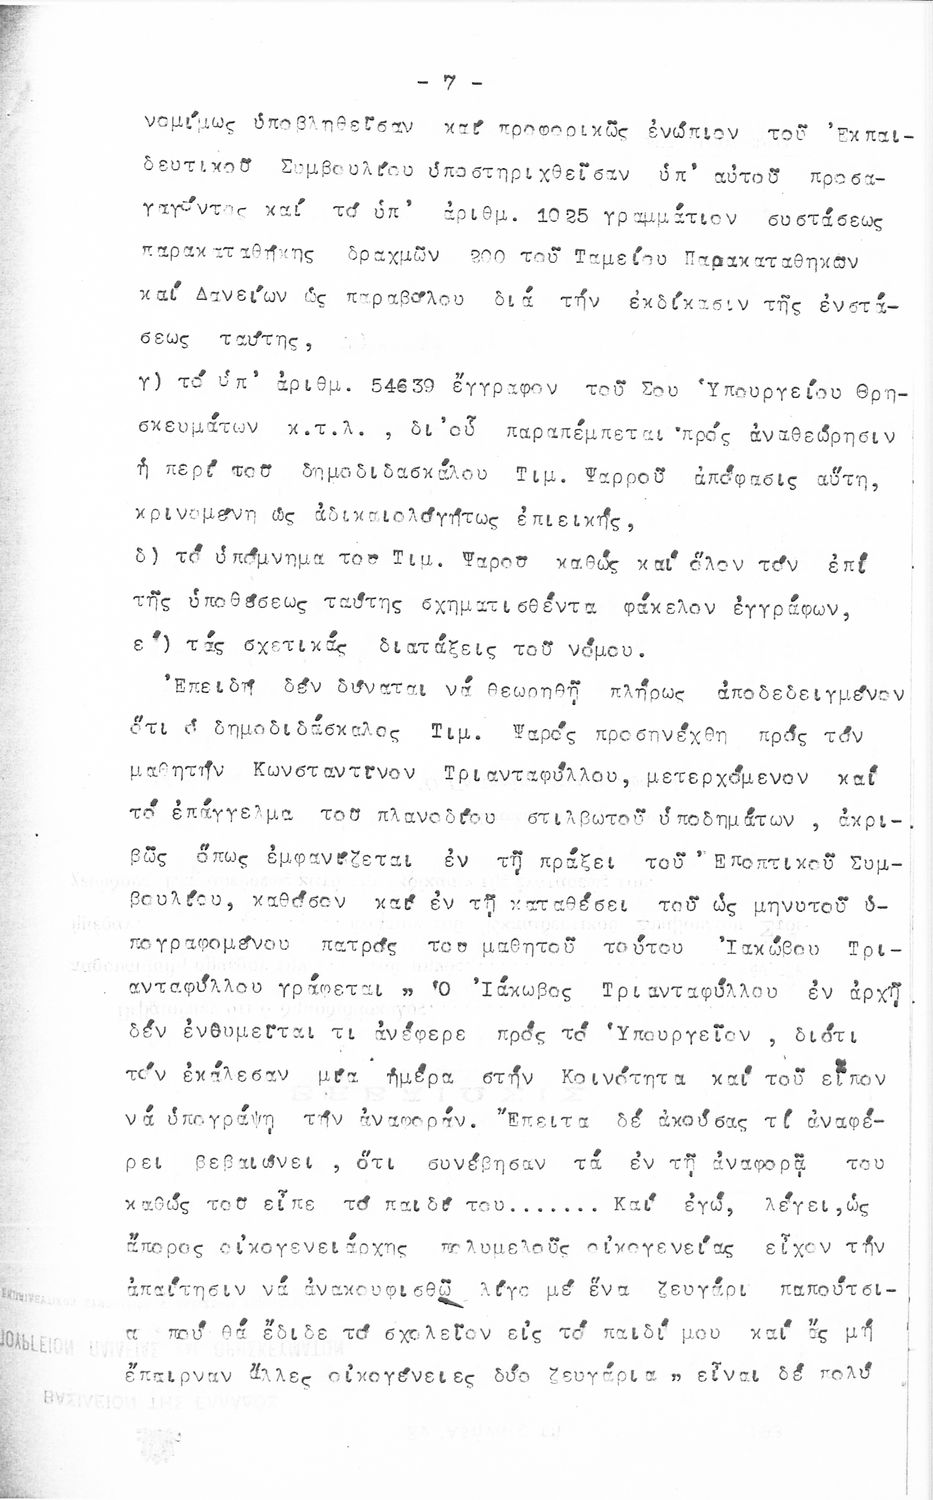 - 7 -
νομίμως ὑποβληθεῖσαν καί προφορικῶς ἐνώπιον τοῦ Ἐκπαι-
δευτικοῦ Συμβουλίου ὑποστηριχθεῖσαν ὑπ' αὐτοῦ προσα-
γαγόντος καί τό ὑπ' ἀριθμ. 1025 γραμμάτιον συστάσεως
παρακαταθήκης δραχμῶν 200 τοῦ Ταμείου Παρακαταθηκῶν
καί Δανείων ὡς παραβόλου διά τήν ἐκδίκασιν τῆς ἐνστά-
σεως ταύτης,
γ) τό ὑπ' ἀριθμ. 54639 ἔγγραφον τοῦ Σου Ὑπουργείου Θρη-
σκευμάτων κ.τ.λ. , δι'οὗ παραπέμπεται πρός ἀναθεώρησιν
ἡ περί τοῦ δημοδιδασκάλου Τιμ. Ψαρροῦ ἀπόφασις αὕτη,
κρινομένη ὡς ἀδικαιολογήτως ἐπιεικής,
δ) τό ὑπόμνημα του Τιμ. Ψαροῦ καθώς καί ὅλον τόν ἐπί
τῆς ὑποθέσεως ταύτης σχηματισθέντα φάκελον ἐγγράφων,
ε') τάς σχετικάς διατάξεις τοῦ νόμου.
Ἐπειδή δέν δύναται νά θεωρηθῇ πλήρως ἀποδεδειγμένον
ὅτι ὁ δημοδιδάσκαλος Τιμ. Ψαρός προσηνέχθη πρός τόν
μαθητήν Κωνσταντῖνον Τριανταφύλλου, μετερχόμενον καί
τό ἐπάγγελμα τοῦ πλανοδίου στιλβωτοῦ ὑποδημάτων , ἀκρι-
βῶς ὅπως ἐμφανίζεται ἐν τῇ πράξει τοῦ Ἐποπτικοῦ Συμ-
βουλίου, καθόσον καί ἐν τῇ καταθέσει τοῦ ὡς μηνυτοῦ ὑ-
πογραφομένου πατρός του μαθητοῦ τούτου Ἰακώβου Τρι-
ανταφύλλου γράφεται „ Ὁ Ἰάκωβος Τριανταφύλλου ἐν ἀρχῇ
δέν ἐνθυμεῖται τι ἀνέφερε πρός τό Ὑπουργεῖον , διότι
τόν ἐκάλεσαν μία ἡμέρα στήν Κοινότητα καί τοῦ εἶπον
νά ὑπογράψῃ τήν ἀναφοράν. Ἔπειτα δέ ἀκούσας τί ἀναφέ-
ρει βεβαιώνει , ὅτι συνέβησαν τά ἐν τῇ ἀναφορᾷ του
καθώς τοῦ εἶπε τό παιδί του....... Καί ἐγώ, λέγει,ὡς
ἄπορος οἰκογενειάρχης πολυμελοῦς οἰκογενείας εἶχον τήν
ἀπαίτησιν νά ἀνακουφισθῶ λίγο μέ ἕνα ζευγάρι παπούτσι-
α πού θά ἔδιδε τό σχολεῖον εἰς τό παιδί μου καί ἄς μή
ἔπαιρναν ἄλλες οἰκογένειες δύο ζευγάρια „ εἶναι δέ πολύ